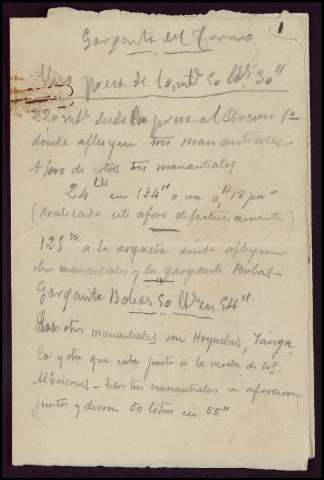 1
Garganta del Tormo
presa de 50 ltrs 30"
220 mts desde la presa al Arcun 1º
donde afluyen tres manantiales
Aforo de estos tres manantiales
24 lts en 134" o sea 0,"18 por"
(Realizado este aforo defectuosamente)
125 m a la arqueta donde afluyen
otros manantiales y la garganta Bobas-
Garganta Bobas 50 lts en 54"
Los otros manantiales son Hoyuelas,
y otro que esta junto a la vereda de los
- Estos tres manantiales se aforaron
juntos y dieron 50 litros en 55"